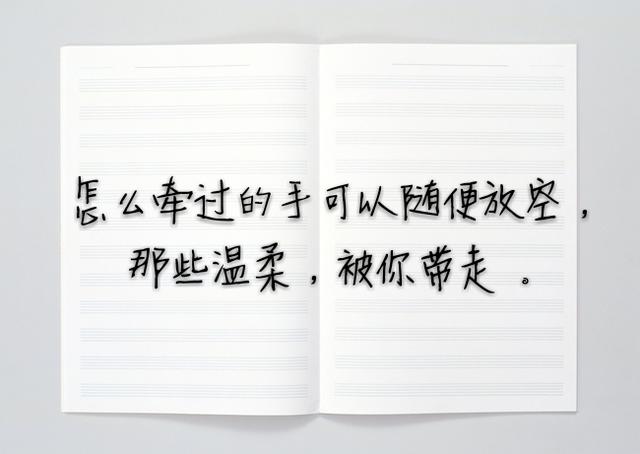 怎么牵过的手可以随便放空，
那些温柔，被你带走。